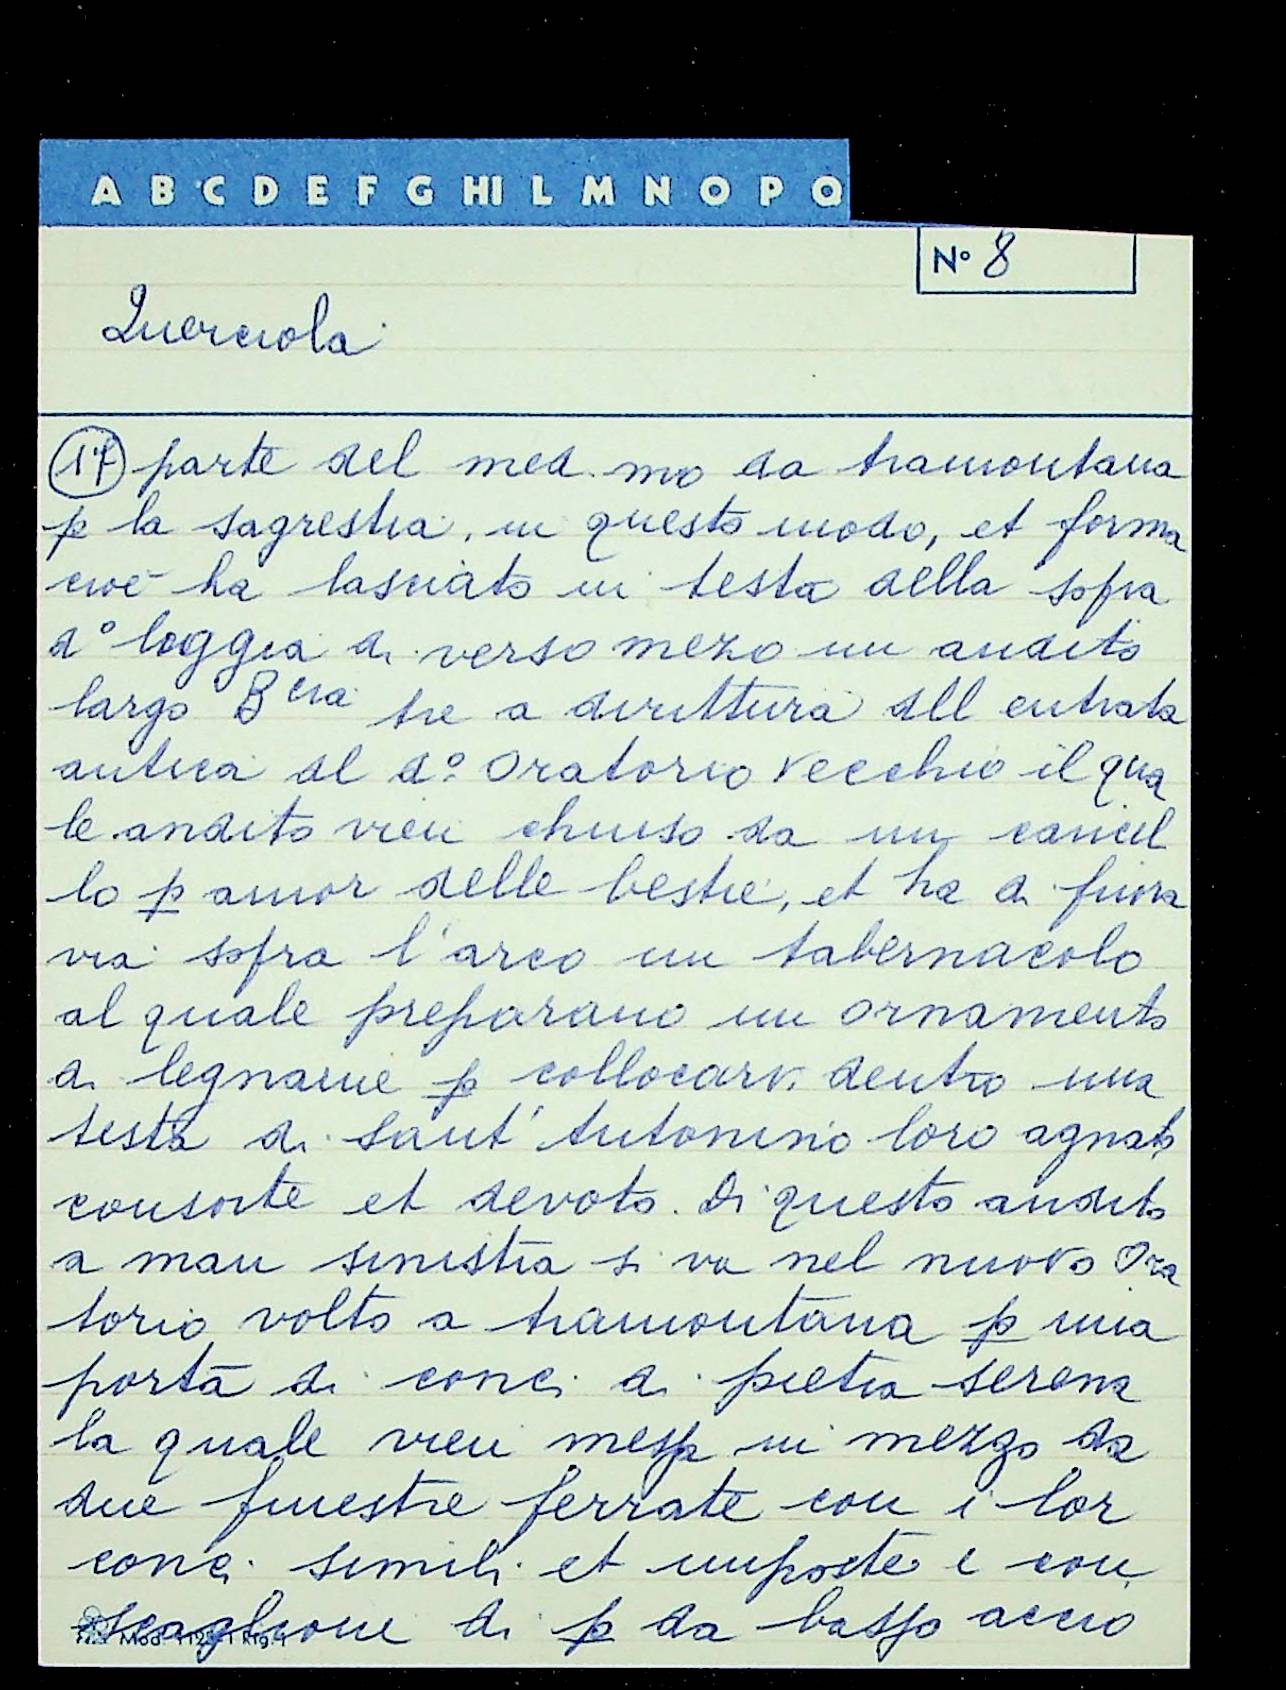 A B C D E F G HI L M N O P Q
N° 8
Querciola
17 parte del med.mo da tramontana
p la sagrestia, in questo modo, et forma
cioè ha lasciato in testa della sopra
d° loggia di verso mezo un andito
largo Bcia tre a dirittura all entrata
antica al d°. Oratorio vecchio il qua
le andito vien chiuso da un cancel
lo p amor delle bestie, et ha di fuora
via sopra l'arco un tabernacolo
al quale preparano un ornamento
di legname p collocarvi dentro una
testa di Sant' Antonino loro agnato
consorte et devoto. Di questo andito
a man sinistra si va nel nuovo Ora
torio volto a tramontana p una
porta di conci di pietra serena
la quale vien messa in mezzo da
due finestre ferrate con i lor
conci simili et imposte e con
scaglione di p da basso acciò
Mod. 1125-1 Rig. 1